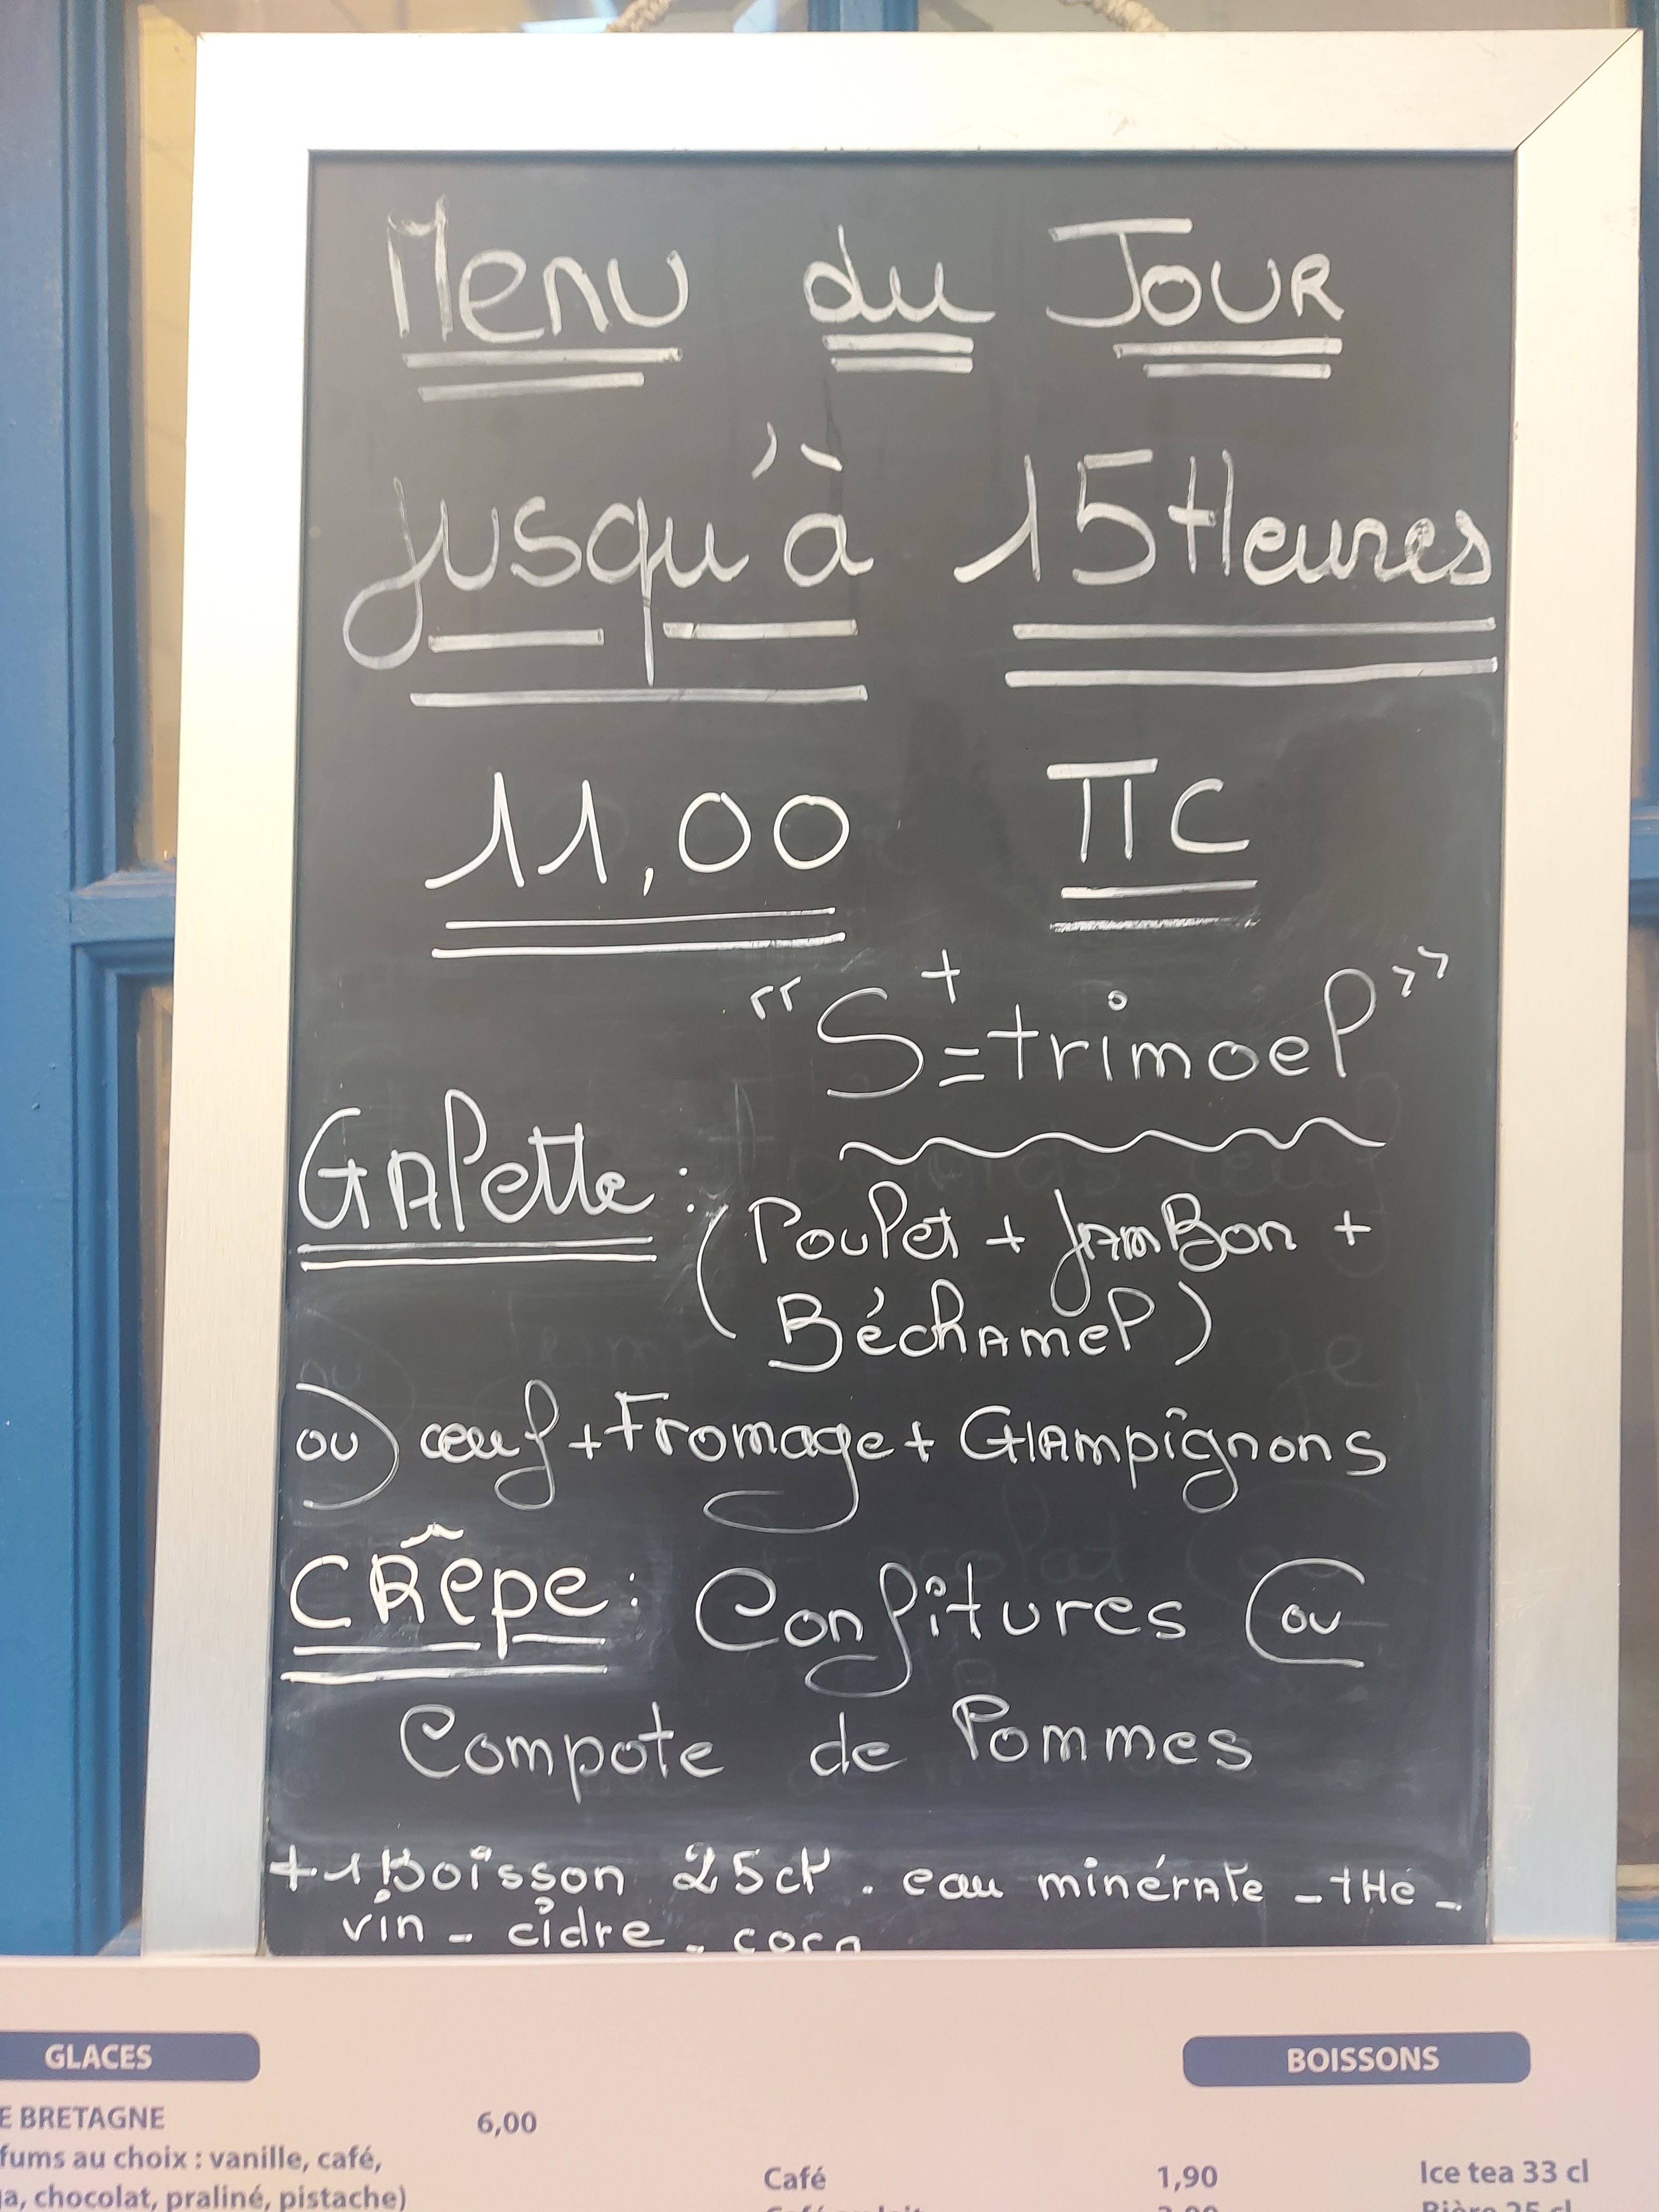 Menu du Jour
jusqu'à 15Heures
11,00 TTC
"St=trimoel"
Galette :
(Poulet + Jambon +
Béchamel)
ou) œuf + Fromage + Champignons
CRêpe : Confitures (ou
Compote de Pommes
+ 1 Boisson 25cl. eau minérale - tHé -
vin - cidre - coca
GLACES
BOISSONS
E BRETAGNE 6,00
fums au choix : vanille, café,
a, chocolat, praliné, pistache)
Café 1,90
Ice tea 33 cl